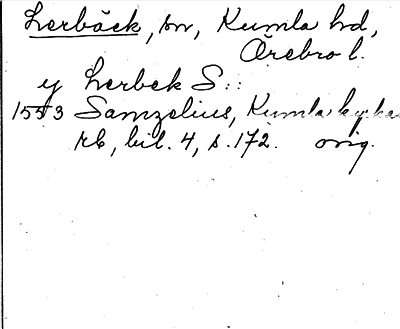 Lerbäck, sn, Kumla hd,
Örebro l.
y Lerbek S::
1553 Samzelius, Kumla
rb, bil. 4, s. 172. orig.